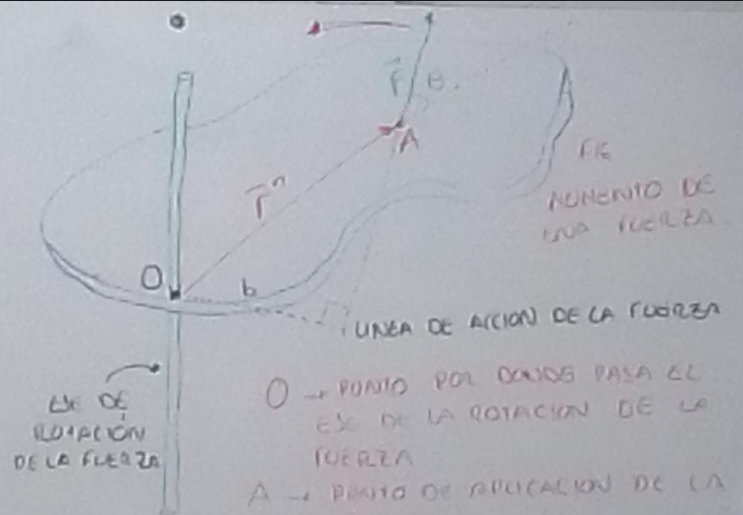 F
θ
A
r
FIG
MOMENTO DE
UNA FUERZA
O
b
LINEA DE ACCION DE LA FUERZA
EJE DE
ROTACIÓN
DE LA FUERZA
O → PUNTO POR DONDE PASA EL
EJE DE LA ROTACION DE LA
FUERZA
A → PUNTO DE APLICACION DE LA